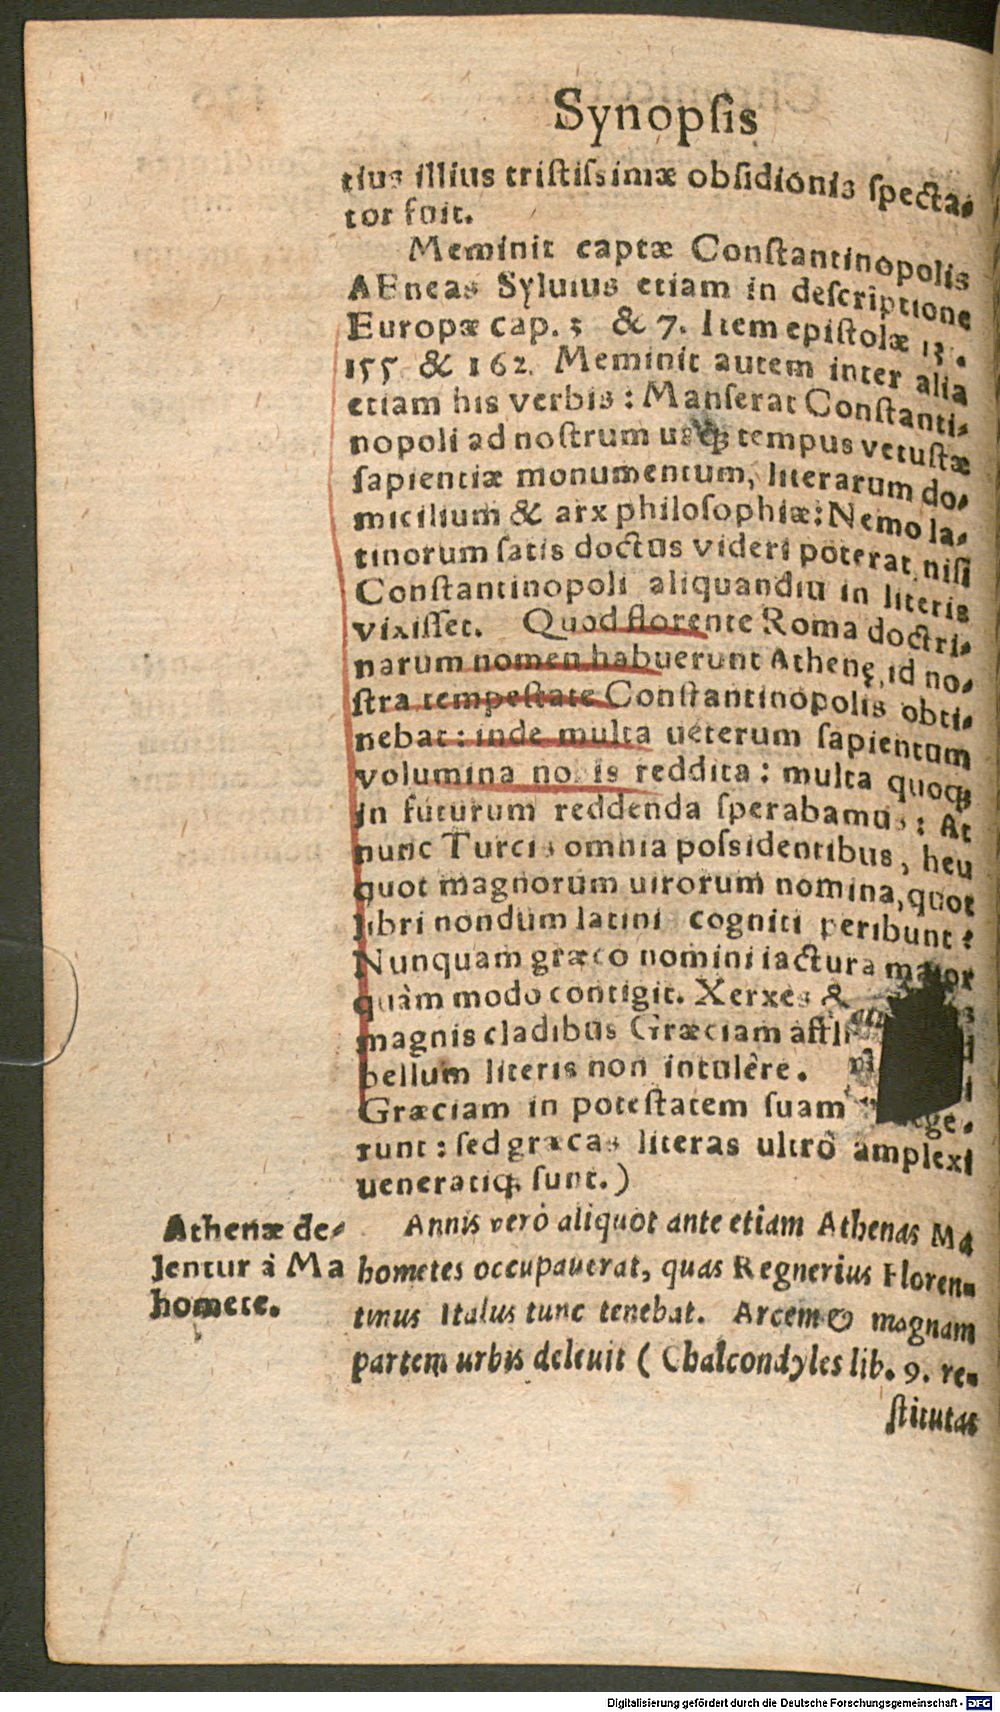 Synopſis
tius illius triſtiſsimæ obſidionis ſpecta-
tor fuit.
Meminit captæ Conſtantinopolis
AEneas Syluius etiam in deſcriptione
Europæ cap. 3 & 7. Item epiſtolæ 13.
155 & 162. Meminit autem inter alia
etiam his verbis: Manſerat Conſtanti-
nopoli ad noſtrum usq; tempus vetuſtæ
ſapientiæ monumentum, literarum do-
micilium & arx philoſophiæ: Nemo la-
tinorum ſatis doctus videri poterat, niſi
Conſtantinopoli aliquandiu in literis
vixiſſet. Quod florente Roma doctri-
narum nomen habuerunt Athenę, id no-
ſtra tempeſtate Conſtantinopolis obti-
nebat: inde multa ueterum ſapientum
volumina nobis reddita: multa quoq;
in futurum reddenda ſperabamus: At
nunc Turcis omnia poſsidentibus, heu
quot magnorum uirorum nomina, quot
libri nondum latini cogniti peribunt?
Nunquam græco nomini iactura maior
quàm modo contigit. Xerxes &
magnis cladibus Græciam affli
bellum literis non intulêre.
Græciam in poteſtatem ſuam ege-
runt: ſed græcas literas ultrò amplexi
ueneratiq; ſunt.)
Athenæ de-
lentur à Ma
homete.
Annis verò aliquot ante etiam Athenas Ma
hometes occupauerat, quas Regnerius Floren-
tinus Italus tunc tenebat. Arcem & magnam
partem urbis deleuit (Chalcondyles lib. 9. re-
ſtitutas
Digitalisierung gefördert durch die Deutsche Forschungsgemeinschaft - DFG